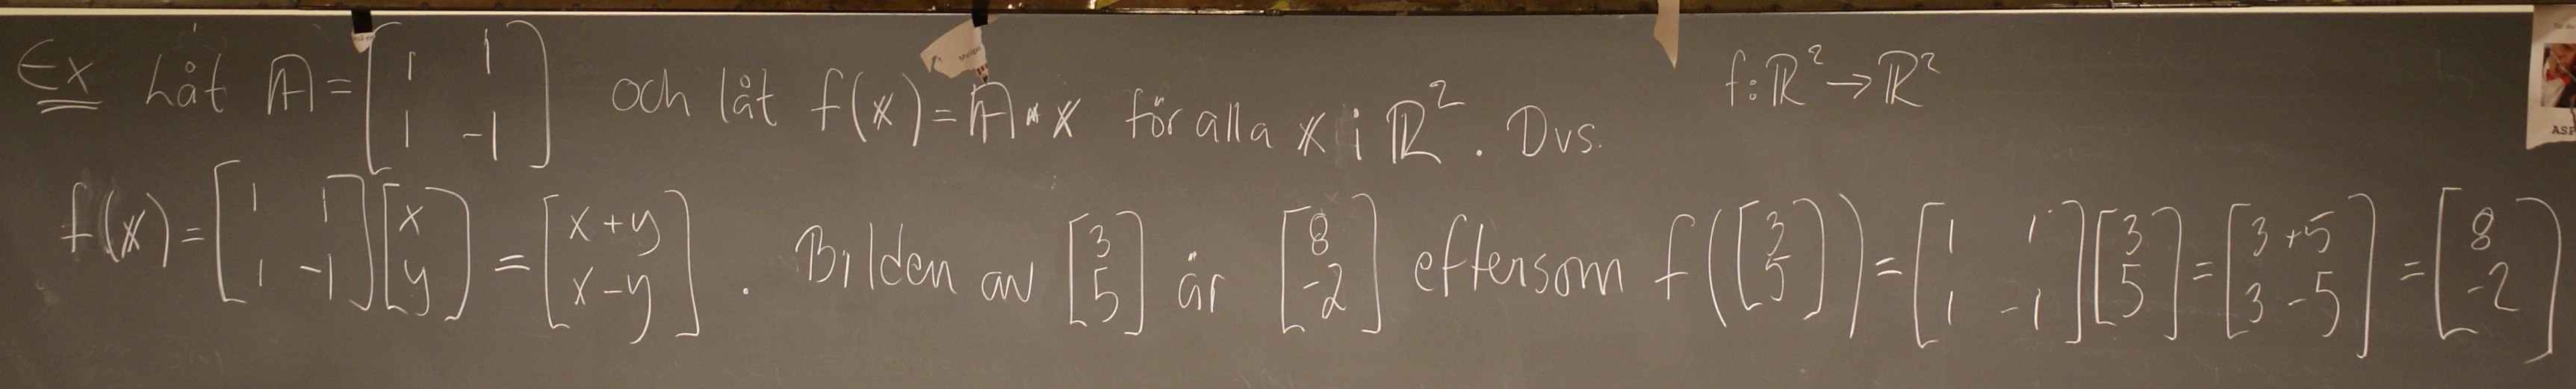 Ex Låt A = [1 1; 1 -1] och låt f(x) = A · x för alla x i ℝ². Dvs. f: ℝ² → ℝ²
f(x) = [1 1; 1 -1] [x; y] = [x+y; x-y]. Bilden av [3; 5] är [8; -2] eftersom f([3; 5]) = [1 1; 1 -1] [3; 5] = [3+5; 3-5] = [8; -2]